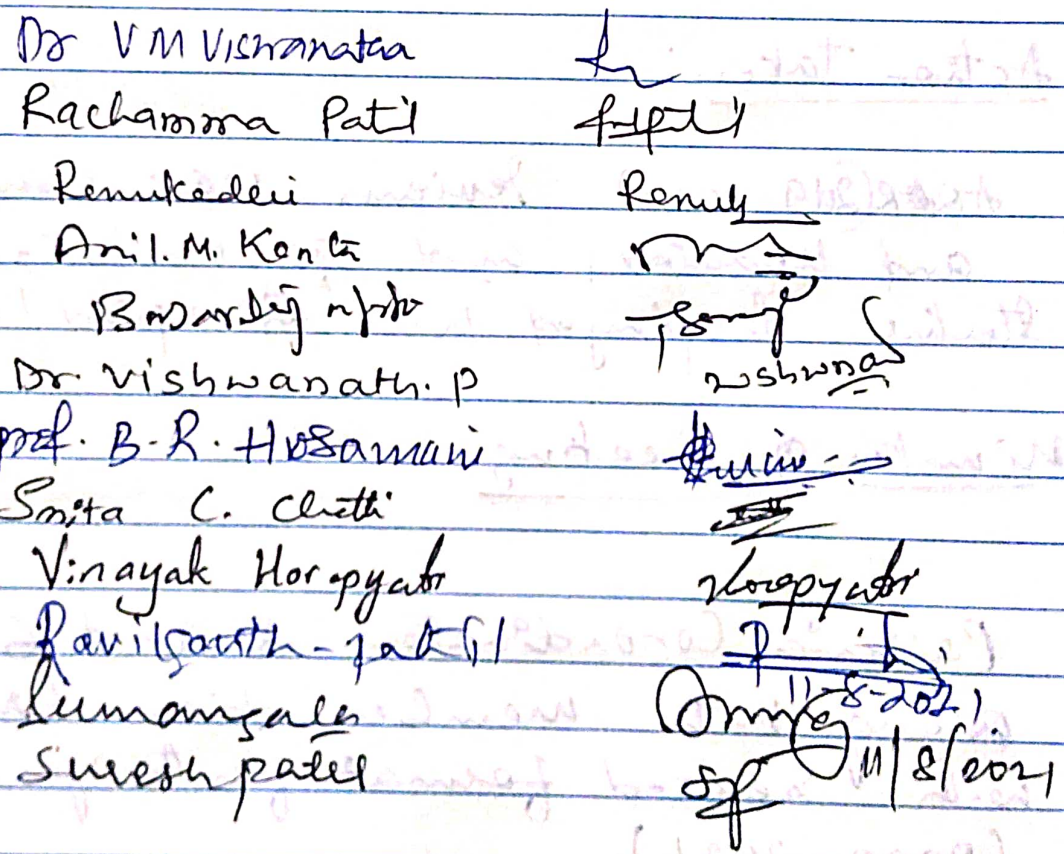 Dr V M Viswanataa
Rachamma Patil
Renukadevi Renuk
Anil. M. Kanta
Dr. Vishwanath. P Vishwanath
prof. B-R. Hosamani
Smita C. Chetti
Vinayak Horapyati Horapyati
Ravikanth - Patil
11-8-2021
Sumangala
Suresh patil 11/8/2021